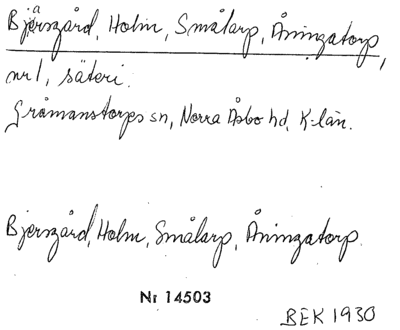 Bjärsgård, Holm, Smålarp, Åningatorp,
nr 1, säteri.
Gråmanstorps sn, Norra Åsbo hd, K-län.
Bjersgård, Holm, Smålarp, Åningatorp.
Nr 14503
BEK 1930